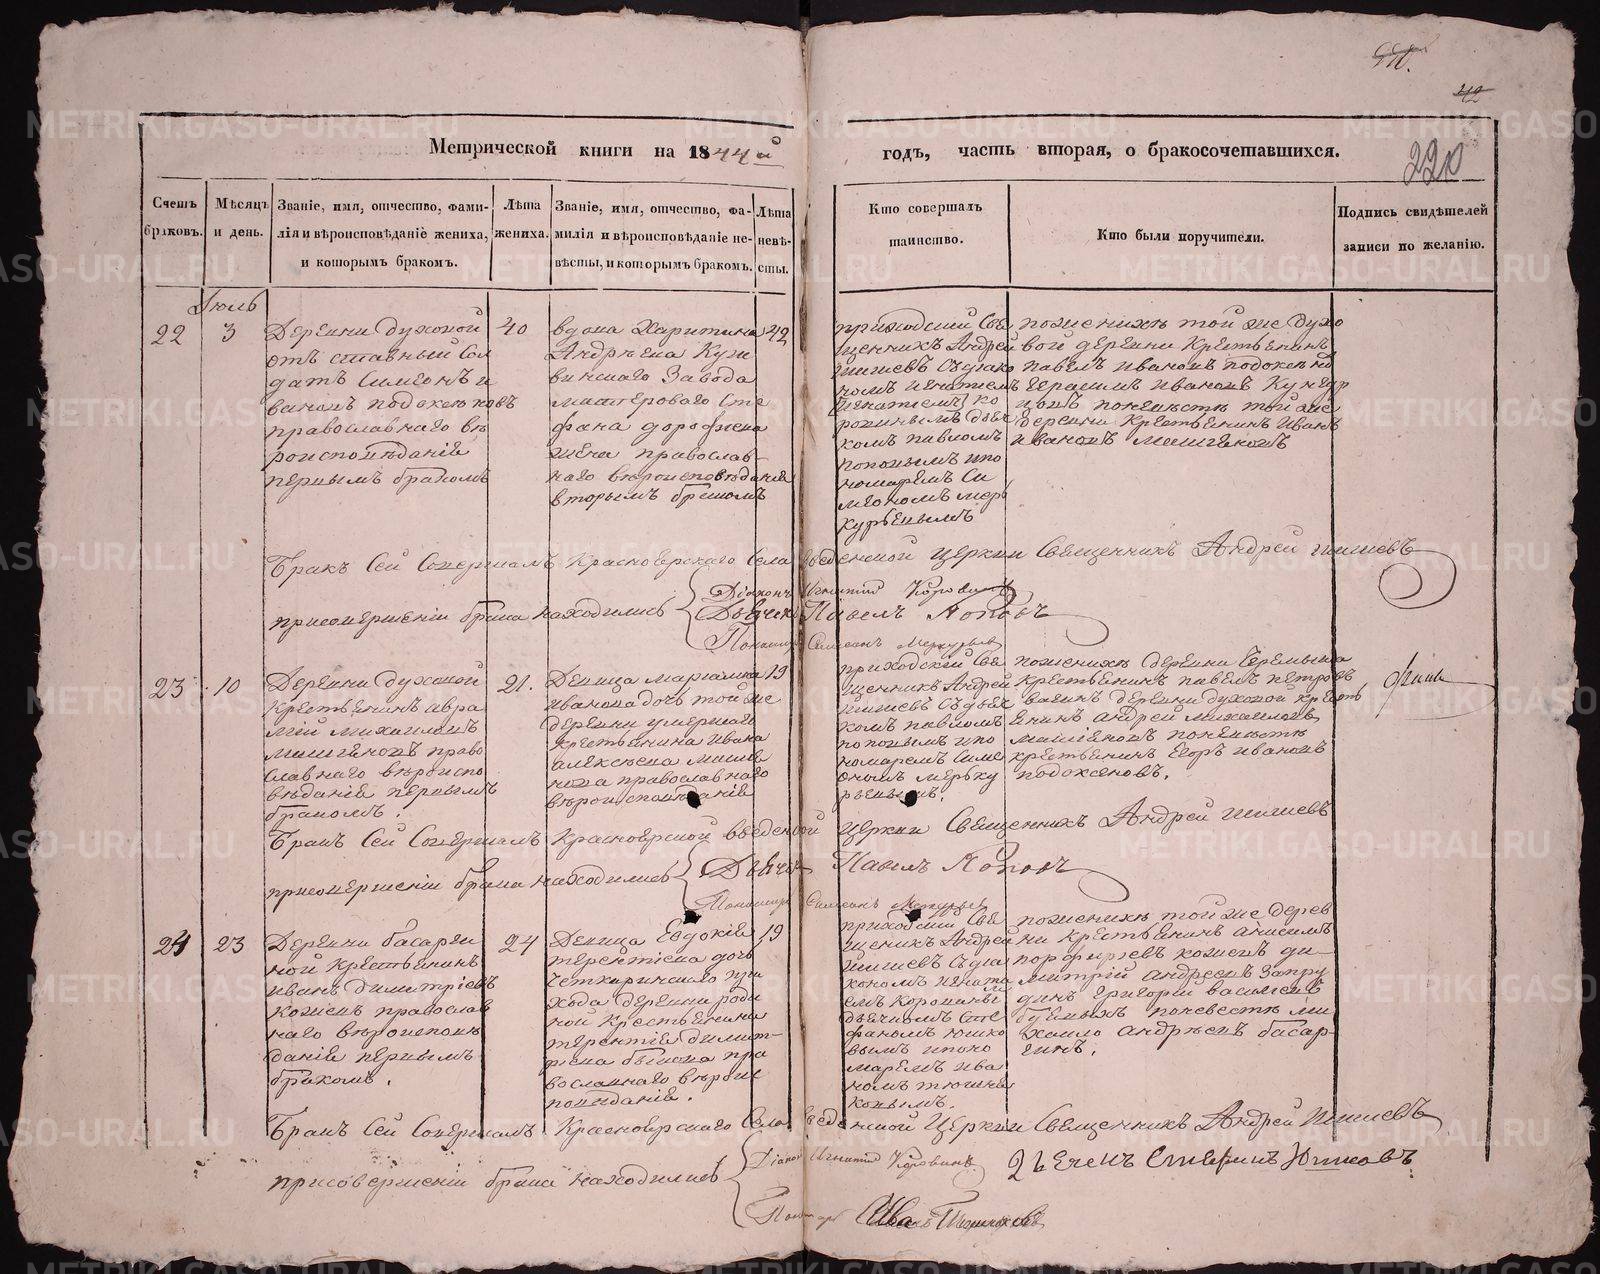 220
Метрической книги на 1844й
годъ, часть вторая, о бракосочетавшихся.
Счетъ браковъ.
Мѣсяцъ и день.
Званіе, имя, отчество, фами-
лія и вѣроисповѣданіе жениха,
и которымъ бракомъ.
Лѣта
жениха.
Званіе, имя, отчество, фа-
милія и вѣроисповѣданіе не-
вѣсты, и которымъ бракомъ.
Лѣта
невѣ-
сты.
Кто совершалъ
таинство.
Кто были поручители.
Подпись свидѣтелей
записи по желанію.
Іюль
22
3
Деревни духовой
отъ ставный Сол
датъ Симеонъ и
вановъ подоксеновъ
православнаго вѣ
роисповѣданія
первымъ бракомъ
40
вдова Харитина
Андрѣева
винскаго Завода
мастероваго Сте
фана дорофѣева
жена православ-
наго вѣроисповѣданія
вторымъ бракомъ
42
приходский Свя
щенникъ Андрей
Шишевъ Съдіако
номъ игнатіемъ
ко
ровинымъ дьяч
комъ павломъ
поповымъ ипо
номаремъ Си
меономъ мер
курьевымъ
поженихѣ той же духо
вой деревни крестьянинъ
павелъ ивановъ подоксено
Герасимъ ивановъ
поневѣстѣ той же
деревни крестьянинъ иванъ
ивановъ
Бракъ Сей Совершалъ Красноярскаго Села введенской церкви Священникъ Андрей Шишевъ
присовершеніи брака находились
Діаконъ Игнатій Коровинъ
Дьячекъ Павелъ Поповъ
Пономарь Симеонъ Меркурьевъ
23
10
Деревни духовой
крестьянинъ авра
мій михаиловъ
право
славнаго вѣроиспо
вѣданія первымъ
бракомъ.
21.
Девица
иванова дочь той же
деревни умершаго
крестьянина ивана
алексѣева
православнаго
вѣроисповѣданія
19
приходский Свя
щенникъ Андрей
Шишевъ Съдьяч
комъ павломъ
поповымъ ипо
номаремъ Симе
ономъ мерку
рьевымъ.
поженихѣ деревни
крестьянинъ павелъ петровъ
деревни духовой крест
янинъ андрей михаиловъ
поневѣстѣ
крестьянинъ Егоръ ивановъ
подоксеновъ.
Бракъ Сей Совершалъ Красноярской введенской церкви Священникъ Андрей Шишевъ
присовершеніи брака находились
Дьячекъ Павелъ Поповъ
Пономарь Симеонъ Меркурьевъ
24
23
Деревни басарги
ной крестьянинъ
иванъ димитріевъ
православ
наго вѣроисповѣ
данія первымъ
бракомъ.
24
Девица Евдокія
терентіева дочь
при
хода деревни роди
ной крестьянина
терентія димит-
ріева быкова пра
вославнаго вѣроис
повѣданія.
19
приходский Свя
щеникъ Андрей
Шишевъ Съдіа
кономъ игнаті
емъ коровины
дьячкомъ Сте
фаномъ юшко
вымъ ипоно
маремъ ива
номъ тюшня
ковымъ.
поженихѣ той же дерев
ни крестьянинъ анисимъ
ди
митрій андреевъ запру
динъ григорій василіевъ
поневестѣ ми
хаило андрѣевъ басар-
гинъ.
Бракъ Сей Совершалъ Красноярскаго Села введенской Церкви Священникъ Андрей Шишевъ
присовершеніи брака находились
Діаконъ Игнатій Коровинъ
Дьячекъ Стефанъ Юшковъ
Пономарь Иванъ
METRIKI.GASO-URAL.RU